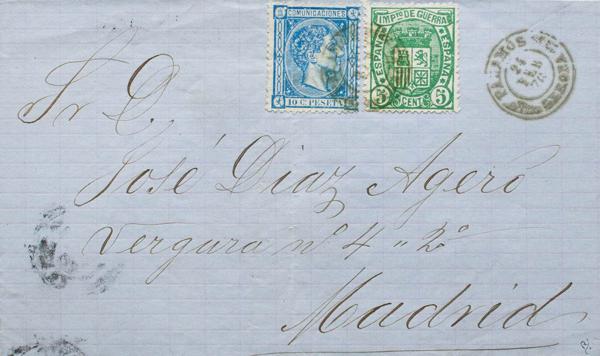 COMUNICACIONES
10 C. PESETA
IMPTO DE GUERRA
ESPAÑA ESPAÑA
5 CENT 5
Sr D.
José Diaz Agero
Vergara nº 4 " 2º
Madrid